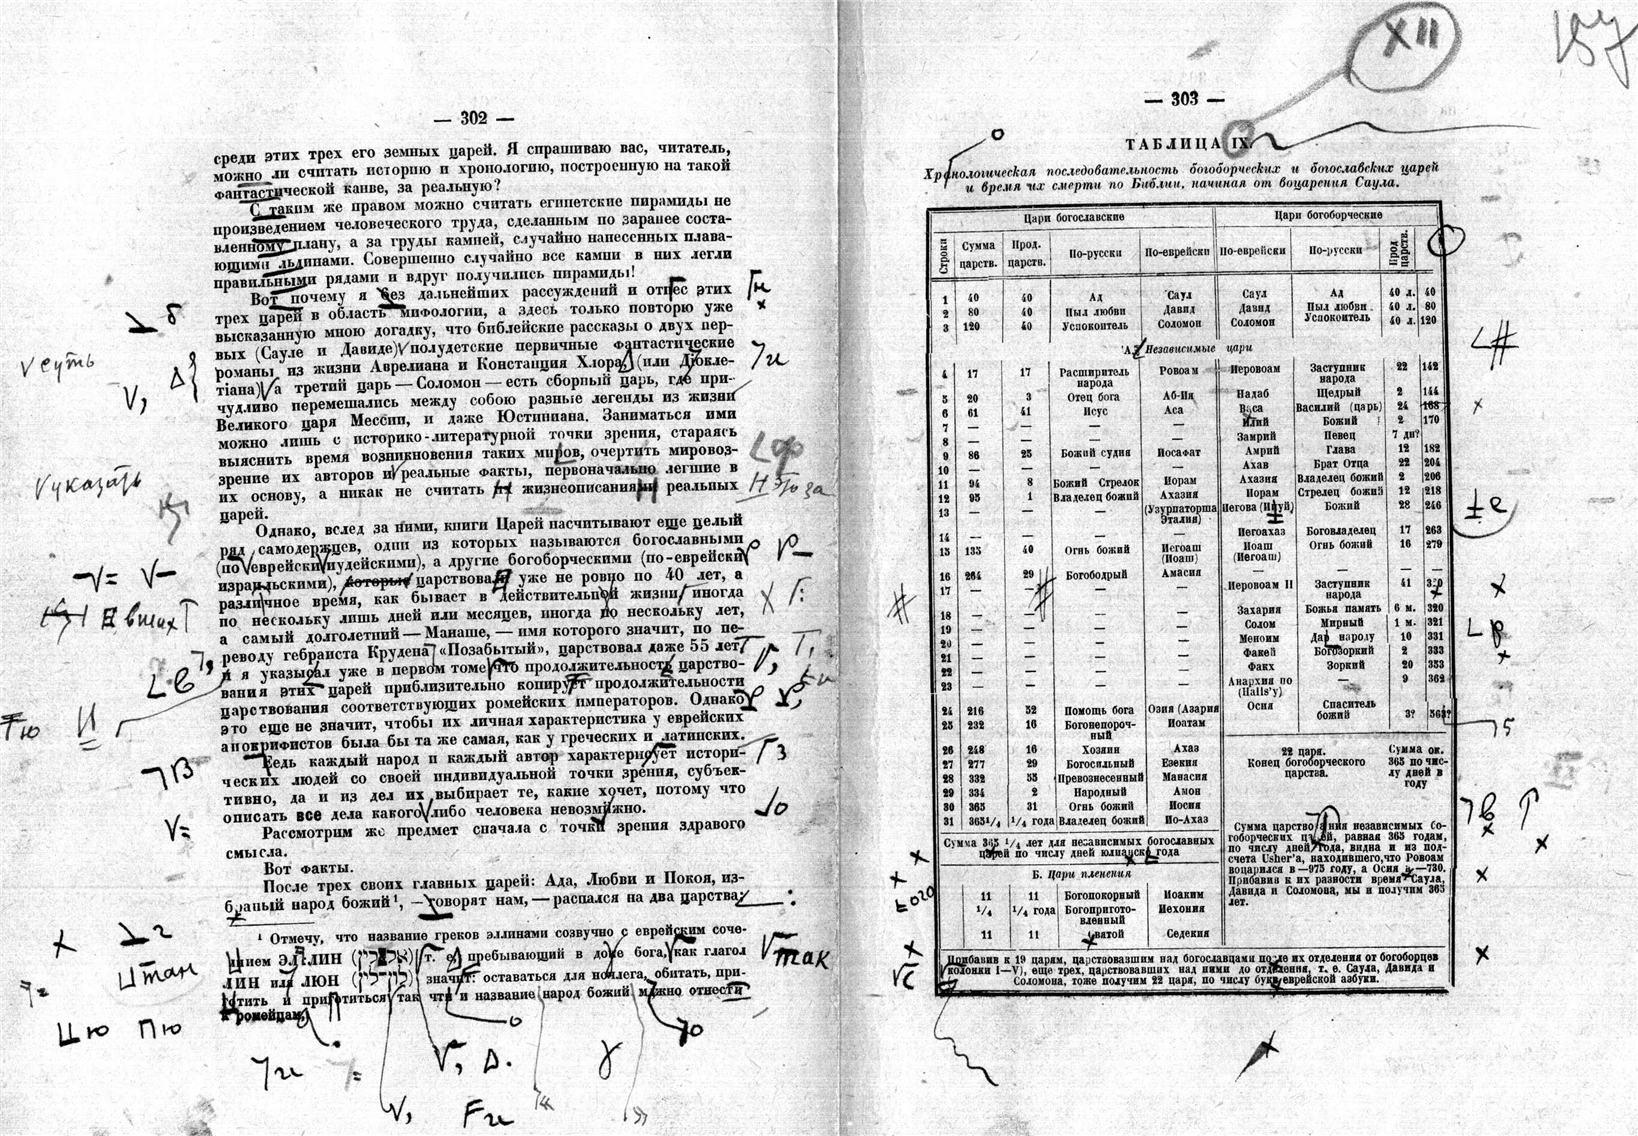 — 302 —
среди этих трех его земных царей. Я спрашиваю вас, читатель,
можно ли считать историю и хронологию, построенную на такой
фантастической канве, за реальную?
С таким же правом можно считать египетские пирамиды не
произведением человеческого труда, сделанным по заранее соста-
вленному плану, а за груды камней, случайно нанесенных плава-
ющими льдинами. Совершенно случайно все камни в них легли
правильными рядами и вдруг получились пирамиды!
Вот почему я без дальнейших рассуждений и отнес этих
трех царей в область мифологии, а здесь только повторю уже
высказанную мною догадку, что библейские рассказы о двух пер-
вых (Сауле и Давиде) полудетские первичные фантастические
романы из жизни Аврелиана и Констанция Хлора, (или Диокле-
тиана) а третий царь — Соломон — есть сборный царь, где при-
чудливо перемешались между собою разные легенды из жизни
Великого царя Мессии, и даже Юстиниана. Заниматься ими
можно лишь с историко-литературной точки зрения, стараясь
выяснить время возникновения таких миров, очертить мировоз-
зрение их авторов и реальные факты, первоначально легшие в
их основу, а никак не считать их жизнеописаниями реальных
царей.
Однако, вслед за ними, книги Царей насчитывают еще целый
ряд самодержцев, одни из которых называются богославными
(по еврейски иудейскими), а другие богоборческими (по-еврейски
израильскими), которые царствовали уже не ровно по 40 лет, а
различное время, как бывает в действительной жизни иногда
по нескольку лишь дней или месяцев, иногда по нескольку лет,
а самый долголетний — Манаше, — имя которого значит, по пе-
реводу гебраиста Крудена, «Позабытый», царствовал даже 55 лет
и я указывал уже в первом томе что продолжительность царство-
вания этих царей приблизительно копирует продолжительности
царствования соответствующих ромейских императоров. Однако
это еще не значит, чтобы их личная характеристика у еврейских
апокрифистов была бы та же самая, как у греческих и латинских.
Ведь каждый народ и каждый автор характеризует истори-
ческих людей со своей индивидуальной точки зрения, субъек-
тивно, да и из дел их выбирает те, какие хочет, потому что
описать все дела какого либо человека невозможно.
Рассмотрим же предмет сначала с точки зрения здравого
смысла.
Вот факты.
После трех своих главных царей: Ада, Любви и Покоя, из-
бранный народ божий ¹, — говорят нам, — распался на два царства:
¹ Отмечу, что название греков эллинами созвучно с еврейским соче-
т. е. пребывающий в доме бога, как глагол
ЛИН или ЛЮН значит: оставаться для ночлега, обитать, при-
ютить и приютиться так что и название народ божий можно отнести
к ромейцам.
V суть
V указать
V так
Цю Пю
XII
157
— 303 —
ТАБЛИЦА IX.
Хронологическая последовательность богоборческих и богославских царей
и время их смерти по Библии, начиная от воцарения Саула.
Цари богославские | Цари богоборческие
Строки | Сумма царств. | Прод. царств. | По-русски | По-еврейски | По-еврейски | По-русски | Прод царств.
1 | 40 | 40 | Ад | Саул | Саул | Ад | 40 л. | 40
2 | 80 | 40 | Пыл любви | Давид | Давид | Пыл любви | 40 л. | 80
3 | 120 | 40 | Успокоитель | Соломон | Соломон | Успокоитель | 40 л. | 120
А. Независимые цари
4 | 17 | 17 | Расширитель народа | Ровоам | Иеровоам | Заступник народа | 22 | 142
5 | 20 | 3 | Отец бога | Аб-Ия | Надаб | Щедрый | 2 | 144
6 | 61 | 41 | Исус | Аса | Васа | Василий (царь) | 24 | 168
7 | — | — | — | — | Илий | Божий | 2 | 170
8 | — | — | — | — | Замрий | Певец | 7 дн?
9 | 86 | 25 | Божий судия | Иосафат | Амрий | Глава | 12 | 182
10 | — | — | — | — | Ахав | Брат Отца | 22 | 204
11 | 94 | 8 | Божий Стрелок | Иорам | Ахазия | Владелец божий | 2 | 206
12 | 95 | 1 | Владелец божий | Ахазия | Иорам | Стрелец божий | 12 | 218
13 | — | — | — | (Узурпаторша Эталия) | Иегова (Ииуй) | Божий | 28 | 246
14 | — | — | — | — | Иегоахаз | Боговладелец | 17 | 263
15 | 135 | 40 | Огнь божий | Иегоаш (Иоаш) | Иоаш (Иегоаш) | Огнь божий | 16 | 279
16 | 264 | 29 | Богободрый | Амасия | — | — | — | —
17 | — | — | — | — | Иеровоам II | Заступник народа | 41 | 320
18 | — | — | — | — | Захария | Божья память | 6 м. | 320
19 | — | — | — | — | Солом | Мирный | 1 м. | 321
20 | — | — | — | — | Меноим | Дар народу | 10 | 331
21 | — | — | — | — | Факей | Богозоркий | 2 | 333
22 | — | — | — | — | Факх | Зоркий | 20 | 353
23 | — | — | — | — | Анархия по (Halls'у) | — | 9 | 362
24 | 216 | 52 | Помощь бога | Озия (Азария | Осия | Спаситель божий | 3? | 363?
25 | 232 | 16 | Боговепороч-ный | Иоатам
26 | 248 | 16 | Хозяин | Ахаз
27 | 277 | 29 | Богосильный | Езекия
28 | 332 | 55 | Превознесенный | Манасия
29 | 334 | 2 | Народный | Амон
30 | 365 | 31 | Огнь божий | Иосия
31 | 365¹/₄ | ¹/₄ года | Владелец божий | Ио-Ахаз
22 царя.
Конец богоборческого
царства.
Сумма ок.
365 по чис-
лу дней в
году
Сумма 365 ¹/₄ лет для независимых богославных
царей по числу дней юлианск. года
Сумма царствования независимых бо-
гоборческих царей, равная 365 годам,
по числу дней года, видна и из под-
счета Usher'а, находившего, что Ровоам
воцарился в —975 году, а Осия в —730.
Прибавив к их разности время Саула,
Давида и Соломона, мы и получим 365
лет.
Б. Цари пленения
11 | 11 | Богопокорный | Иоаким
¹/₄ | ¹/₄ года | Богопригото-вленный | Иехония
11 | 11 | Святой | Седекия
Прибавив к 19 царям, царствовавшим над богославцами после их отделения от богоборцев
(колонки I—V), еще трех, царствовавших над ними до отделения, т. е. Саула, Давида и
Соломона, тоже получим 22 царя, по числу букв еврейской азбуки.